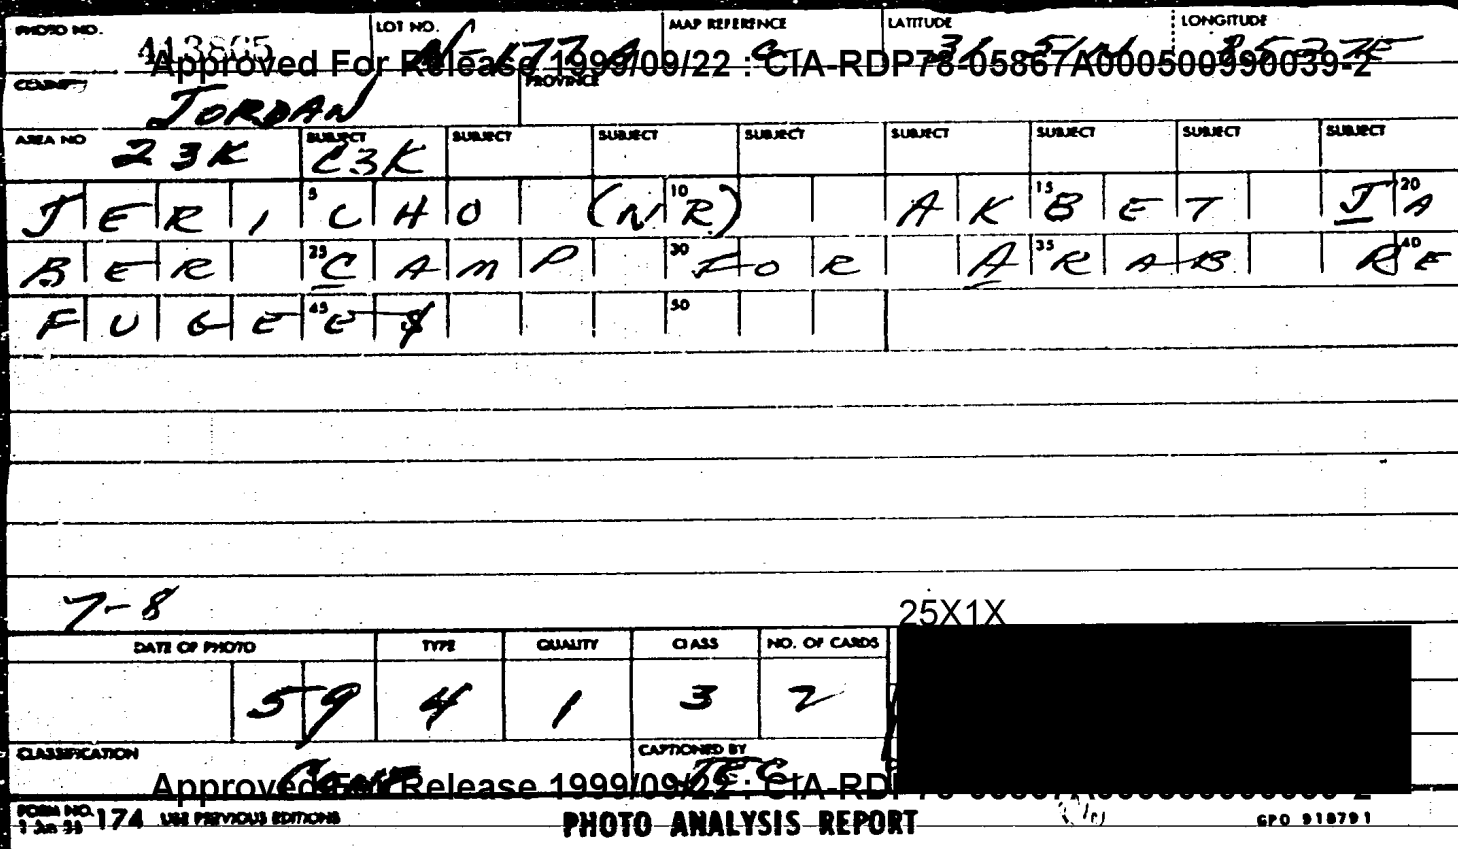 PHOTO NO. LOT NO. MAP REFERENCE LATITUDE LONGITUDE
413865 N-177
Approved For Release 1999/09/22 : CIA-RDP78-05867A000500990039-2
COUNTRY PROVINCE
JORDAN
AREA NO SUBJECT SUBJECT SUBJECT SUBJECT SUBJECT SUBJECT SUBJECT SUBJECT
23K C3K
5 10 15 20
JERICHO (NR) AKBET JA
25 30 35 40
BER CAMP FOR ARAB RE
45 50
FUGEES
7-8
25X1X
DATE OF PHOTO TYPE QUALITY CLASS NO. OF CARDS
59 4 1 3 2
CLASSIFICATION CAPTIONED BY
Conf
Approved For Release 1999/09/22 : CIA-RD
FORM NO. 174 USE PREVIOUS EDITIONS PHOTO ANALYSIS REPORT GPO 918791